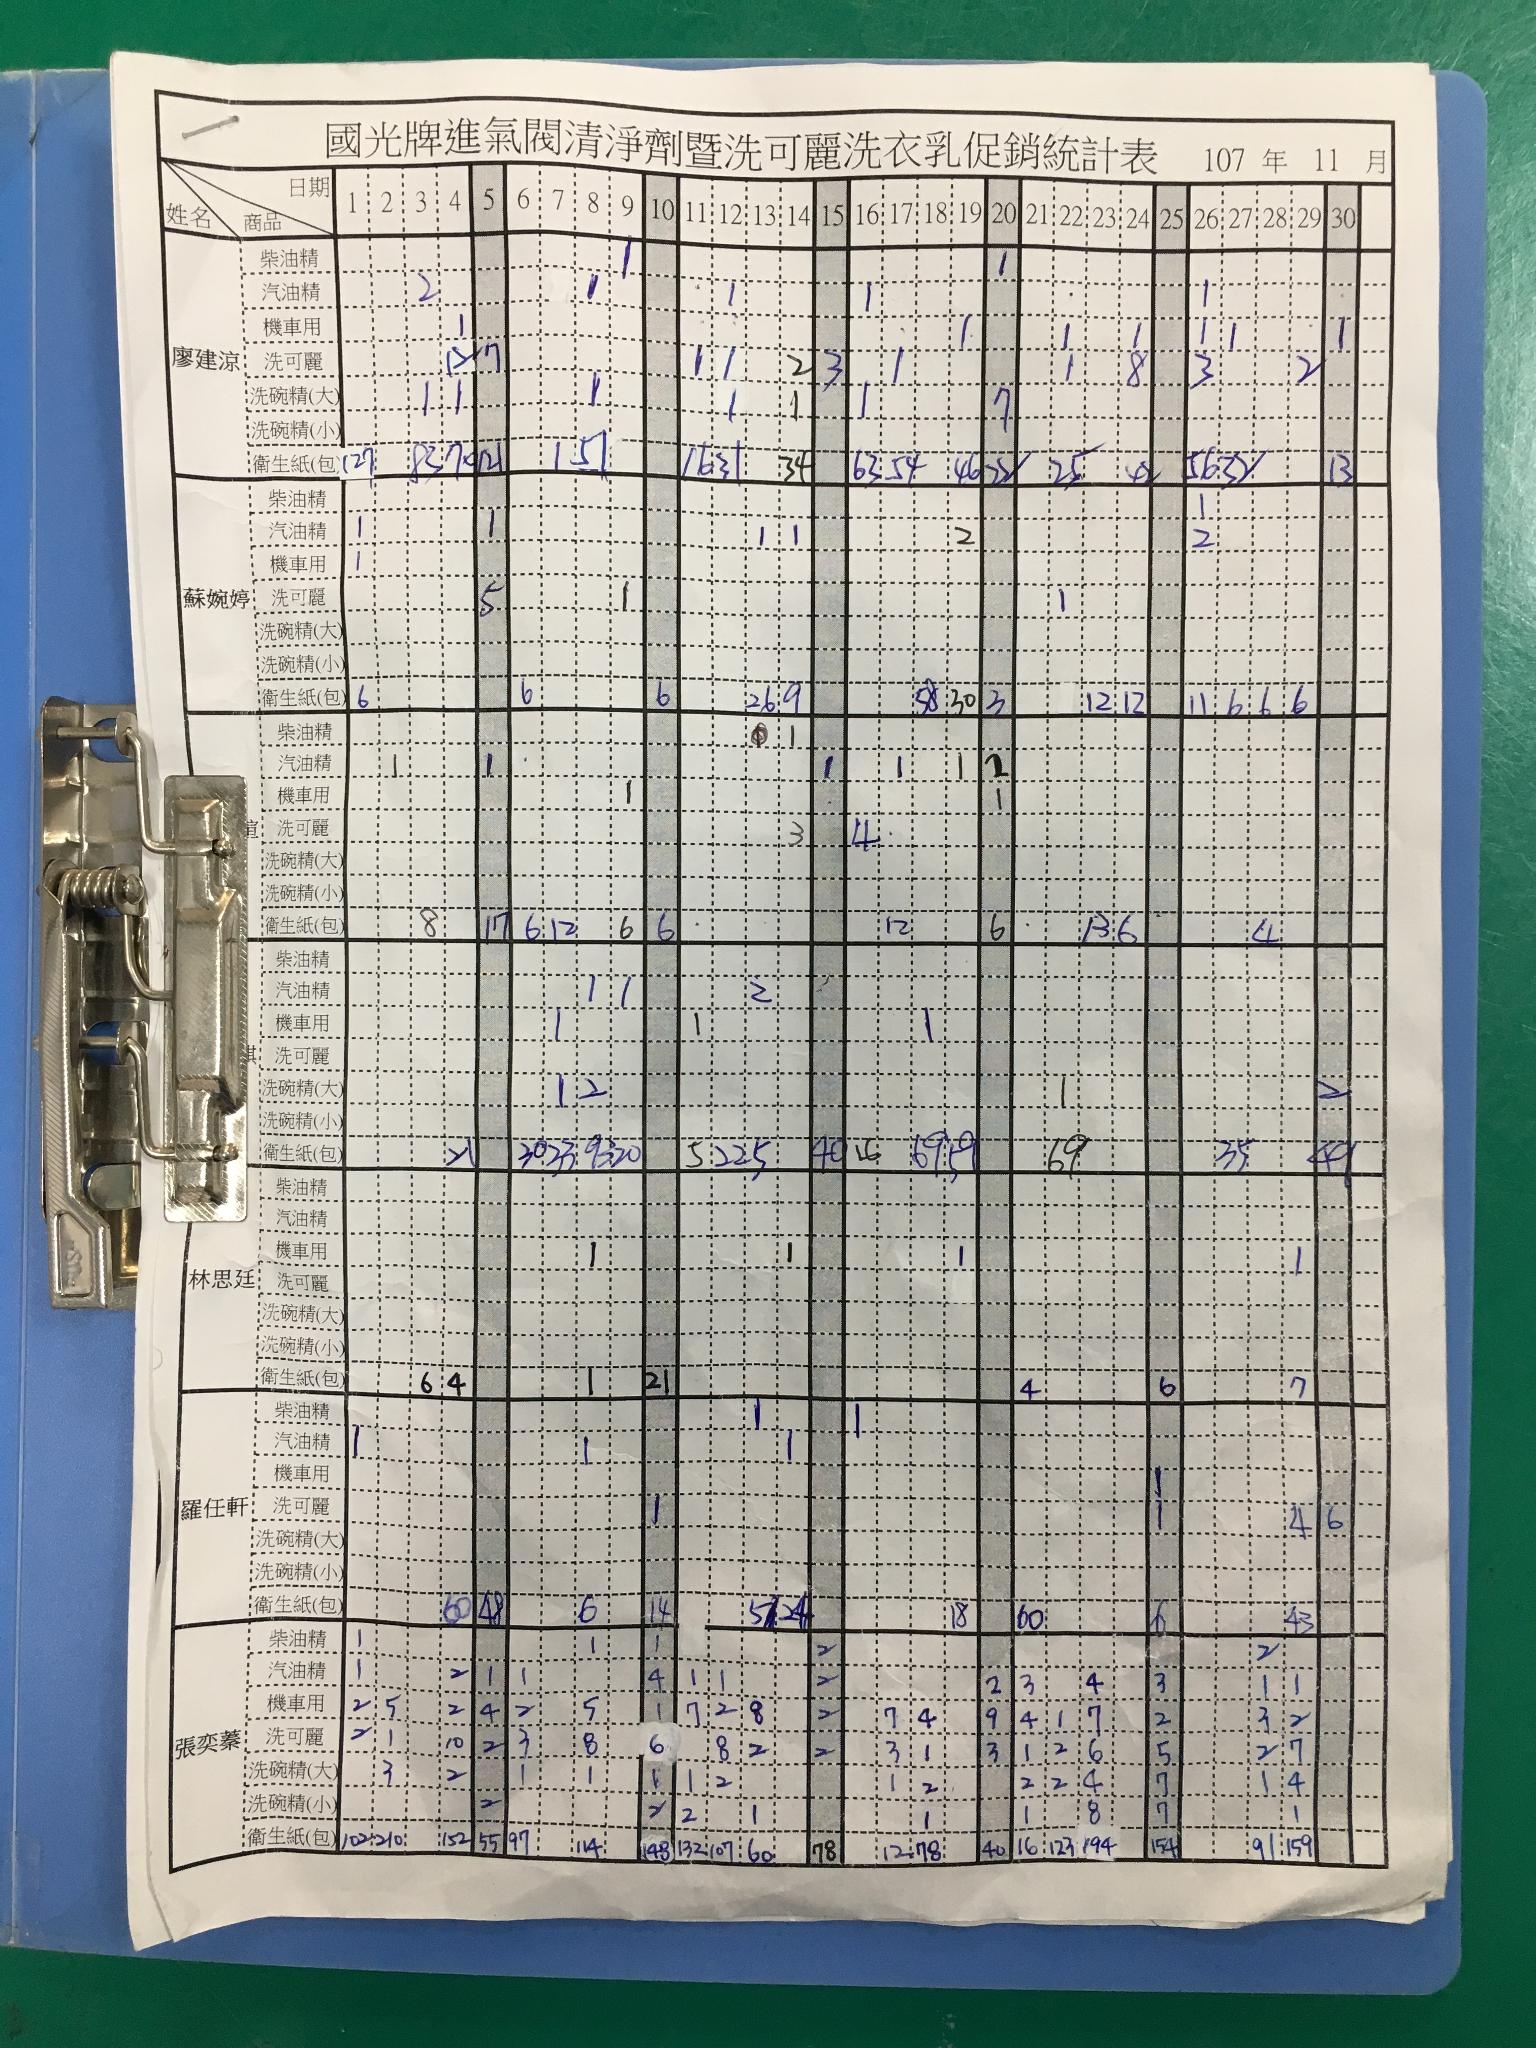 國光牌進氣閥清淨劑暨洗可麗洗衣乳促銷統計表 107 年 11 月
日期 1 2 3 4 5 6 7 8 9 10 11 12 13 14 15 16 17 18 19 20 21 22 23 24 25 26 27 28 29 30
姓名 商品
柴油精 1 1
汽油精 2 1 1 1 1
機車用 1 1 1 1 1 1 1
廖建涼 洗可麗 7 1 1 2 3 1 1 8 3 2
洗碗精(大) 1 1 1 1 1 1 7
洗碗精(小)
衛生紙(包) 127 83 121 1 51 16 31 34 63 54 46 25 56 32 13
柴油精 1
汽油精 1 1 1 1 2 2
機車用 1
蘇婉婷 洗可麗 5 1 1
洗碗精(大)
洗碗精(小)
衛生紙(包) 6 6 6 26 9 58 30 3 12 12 11 6 6 6
柴油精 1
汽油精 1 1 1 1 1
機車用 1 1
洗可麗 3 4
洗碗精(大)
洗碗精(小)
衛生紙(包) 8 17 6 12 6 6 12 6 13 6 4
柴油精
汽油精 1 1 2
機車用 1 1 1
洗可麗
洗碗精(大) 1 2 1 2
洗碗精(小)
衛生紙(包) 21 30 23 93 20 5 22 5 40 69 59 69 35 49
柴油精
汽油精
機車用 1 1 1 1
林思廷 洗可麗
洗碗精(大)
洗碗精(小)
衛生紙(包) 6 4 1 21 4 6 7
柴油精 1 1
汽油精 1 1 1
機車用 1
羅任軒 洗可麗 1 1 4 6
洗碗精(大)
洗碗精(小)
衛生紙(包) 60 48 6 14 24 18 60 6 43
柴油精 1 1 1 2 2
汽油精 1 2 1 1 4 1 1 2 2 3 4 3 1 1
機車用 2 5 2 4 2 5 1 7 2 8 2 7 4 9 4 1 7 2 3 2
張奕蓁 洗可麗 2 1 10 2 3 8 6 8 2 2 3 1 3 1 2 6 5 2 7
洗碗精(大) 3 2 1 1 1 1 2 1 2 2 2 4 7 1 4
洗碗精(小) 2 2 2 1 1 1 8 7 1
衛生紙(包) 102 210 152 55 97 114 148 132 107 60 78 12 78 40 16 123 194 154 91 159